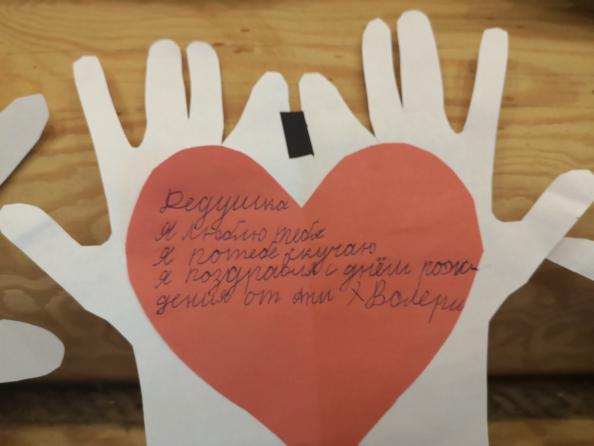 Дедушка
Я люблю тебя
Я потебе скучаю
я поздравля с днём рож-
дения от